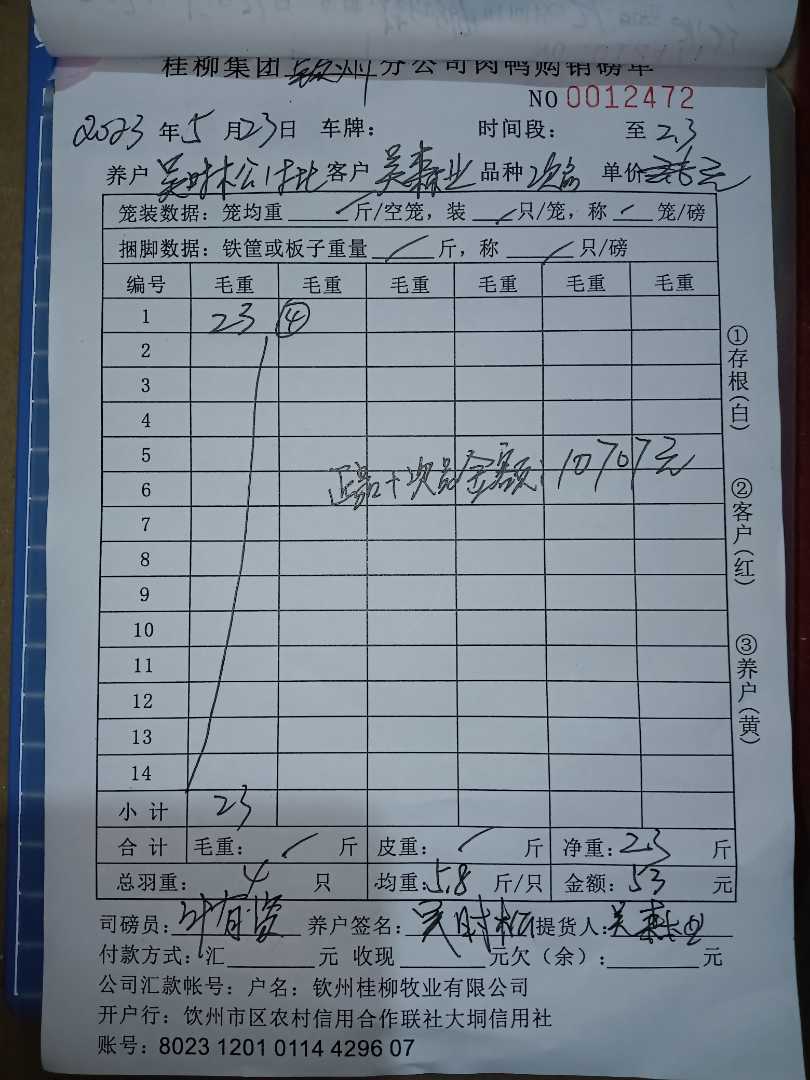 桂柳集团钦州分公司肉鸭购销磅单
NO 0012472
2023年5月23日 车牌： 时间段： 至 23
养户 吴时 客户 吴森业 品种 次品 单价 元
笼装数据：笼均重 / 斤/空笼，装 / 只/笼，称 / 笼/磅
捆脚数据：铁筐或板子重量 / 斤，称 / 只/磅
编号 毛重 毛重 毛重 毛重 毛重 毛重
1 23 ④
2
3
4
5
正品+次品金额：10707元
6
7
8
9
10
11
12
13
14
小计 23
合计 毛重： / 斤 皮重： / 斤 净重：23 斤
总羽重：4 只 均重：5.8 斤/只 金额：53 元
司磅员： 养户签名：吴时 提货人：吴森业
付款方式：汇 元 收现 元欠（余）： 元
公司汇款帐号：户名：钦州桂柳牧业有限公司
开户行：钦州市区农村信用合作联社大垌信用社
账号：8023 1201 0114 4296 07
①存根（白）
②客户（红）
③养户（黄）